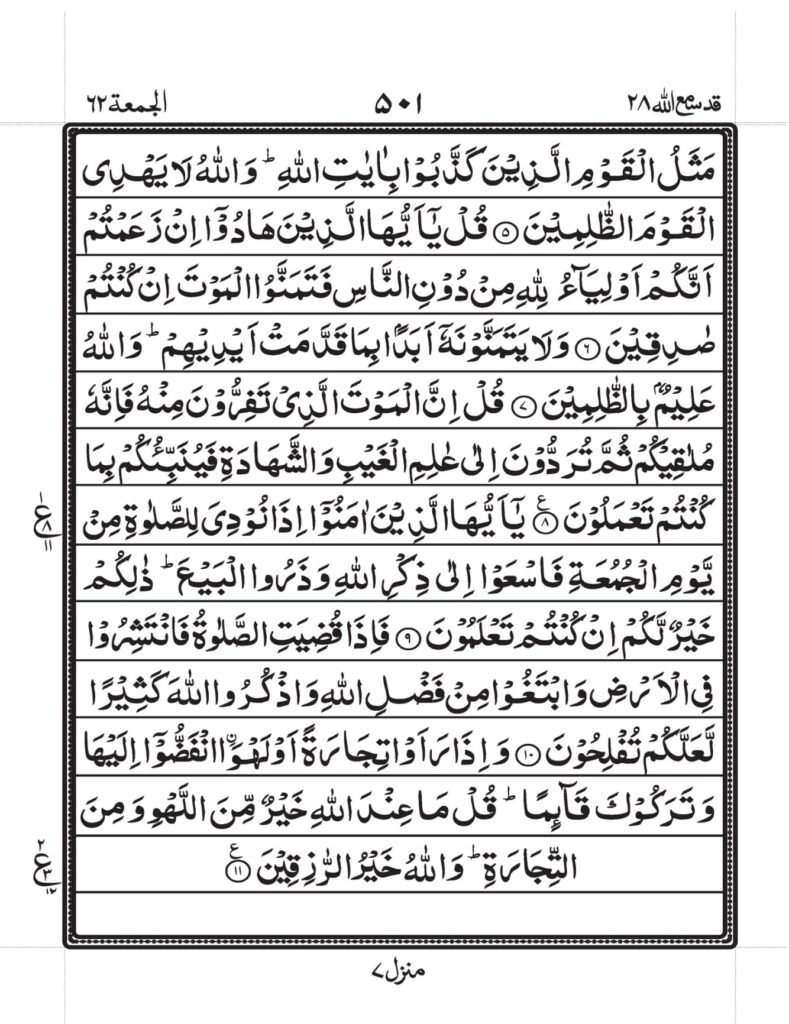 قد سمع الله ٢٨ ٥٠١ الجمعة ٦٢
مَثَلُ الْقَوْمِ الَّذِيْنَ كَذَّبُوْا بِاٰيٰتِ اللّٰهِ ؕ وَاللّٰهُ لَا يَهْدِى
الْقَوْمَ الظّٰلِمِيْنَ ۝٥ قُلْ يٰۤاَيُّهَا الَّذِيْنَ هَادُوْۤا اِنْ زَعَمْتُمْ
اَنَّكُمْ اَوْلِيَآءُ لِلّٰهِ مِنْ دُوْنِ النَّاسِ فَتَمَنَّوُا الْمَوْتَ اِنْ كُنْتُمْ
صٰدِقِيْنَ ۝٦ وَلَا يَتَمَنَّوْنَهٗۤ اَبَدًۢا بِمَا قَدَّمَتْ اَيْدِيْهِمْ ؕ وَاللّٰهُ
عَلِيْمٌۢ بِالظّٰلِمِيْنَ ۝٧ قُلْ اِنَّ الْمَوْتَ الَّذِىْ تَفِرُّوْنَ مِنْهُ فَاِنَّهٗ
مُلٰقِيْكُمْ ثُمَّ تُرَدُّوْنَ اِلٰى عٰلِمِ الْغَيْبِ وَالشَّهَادَةِ فَيُنَبِّئُكُمْ بِمَا
كُنْتُمْ تَعْمَلُوْنَ ۝٨ ع يٰۤاَيُّهَا الَّذِيْنَ اٰمَنُوْۤا اِذَا نُوْدِىَ لِلصَّلٰوةِ مِنْ
١ ع ٨ ١١
يَّوْمِ الْجُمُعَةِ فَاسْعَوْا اِلٰى ذِكْرِ اللّٰهِ وَذَرُوا الْبَيْعَ ؕ ذٰلِكُمْ
خَيْرٌ لَّكُمْ اِنْ كُنْتُمْ تَعْلَمُوْنَ ۝٩ فَاِذَا قُضِيَتِ الصَّلٰوةُ فَانْتَشِرُوْا
فِى الْاَرْضِ وَابْتَغُوْا مِنْ فَضْلِ اللّٰهِ وَاذْكُرُوا اللّٰهَ كَثِيْرًا
لَّعَلَّكُمْ تُفْلِحُوْنَ ۝١٠ وَاِذَا رَاَوْا تِجَارَةً اَوْ لَهْوَا۟ اۨنْفَضُّوْۤا اِلَيْهَا
وَتَرَكُوْكَ قَآئِمًا ؕ قُلْ مَا عِنْدَ اللّٰهِ خَيْرٌ مِّنَ اللَّهْوِ وَمِنَ
التِّجَارَةِ ؕ وَاللّٰهُ خَيْرُ الرّٰزِقِيْنَ ۝١١ ع
٢ ع ٣ ١٢
منزل ٧